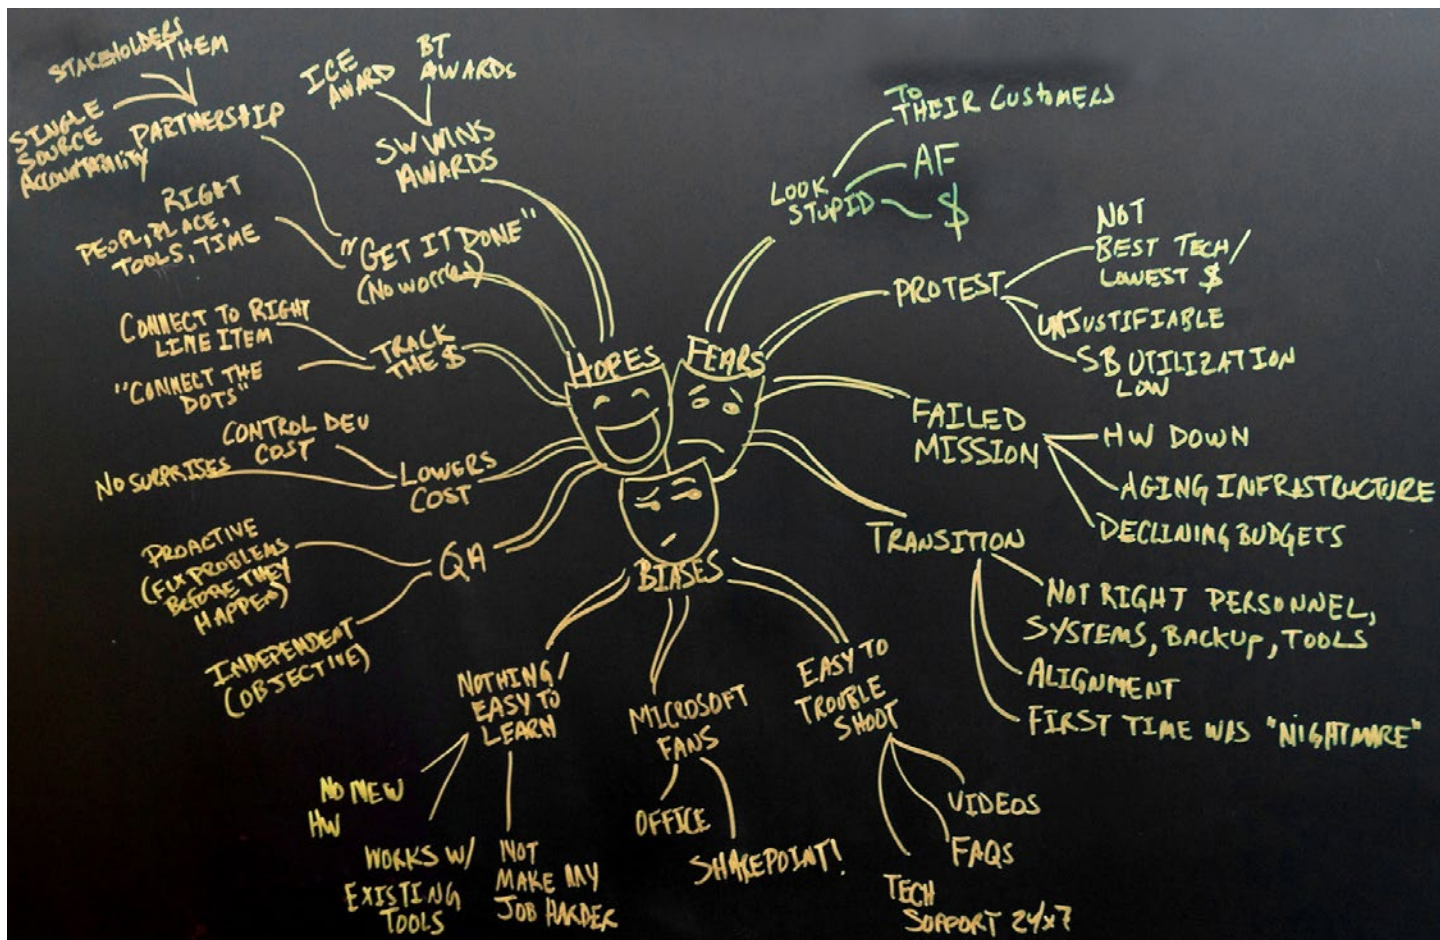 STAKEHOLDERS
THEM
SINGLE
SOURCE
ACCOUNTABILITY
PARTNERSHIP
ICE
AWARD
BT
AWARDS
SW WINS
AWARDS
RIGHT
PEOPL, PLACE,
TOOLS, TIME
"GET IT DONE"
(NO WORRIES)
CONNECT TO RIGHT
LINE ITEM
"CONNECT THE
DOTS"
TRACK
THE $
CONTROL DEV
COST
NO SURPRISES
LOWERS
COST
PROACTIVE
(FIX PROBLEMS
BEFORE THEY
HAPPEN)
INDEPENDENT
(OBJECTIVE)
QA
HOPES
FEARS
BIASES
LOOK
STUPID
TO
THEIR CUSTOMERS
AF
$
PROTEST
NOT
BEST TECH/
LOWEST $
UNJUSTIFIABLE
SB UTILIZATION
LOW
FAILED
MISSION
HW DOWN
AGING INFRASTRUCTURE
DECLINING BUDGETS
TRANSITION
NOT RIGHT PERSONNEL,
SYSTEMS, BACKUP, TOOLS
ALIGNMENT
FIRST TIME WAS "NIGHTMARE"
NOTHING/
EASY TO
LEARN
NO NEW
HW
WORKS W/
EXISTING
TOOLS
NOT
MAKE MY
JOB HARDER
MICROSOFT
FANS
OFFICE
SHAREPOINT!
EASY TO
TROUBLE
SHOOT
VIDEOS
FAQS
TECH
SUPPORT 24x7